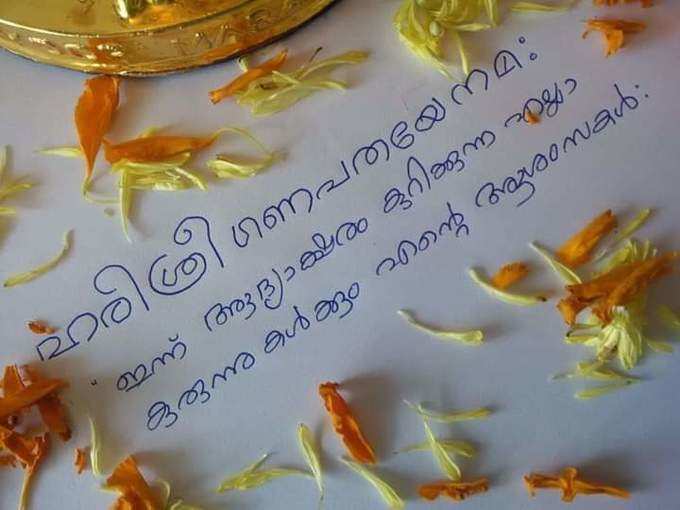 ഹരിശ്രീ ഗണപതയേ നമഃ
ഇന്ന് ആദ്യാക്ഷരം കുറിക്കുന്ന എല്ലാ
കുരുന്നുകൾക്കും എന്റെ ആശംസകൾ: